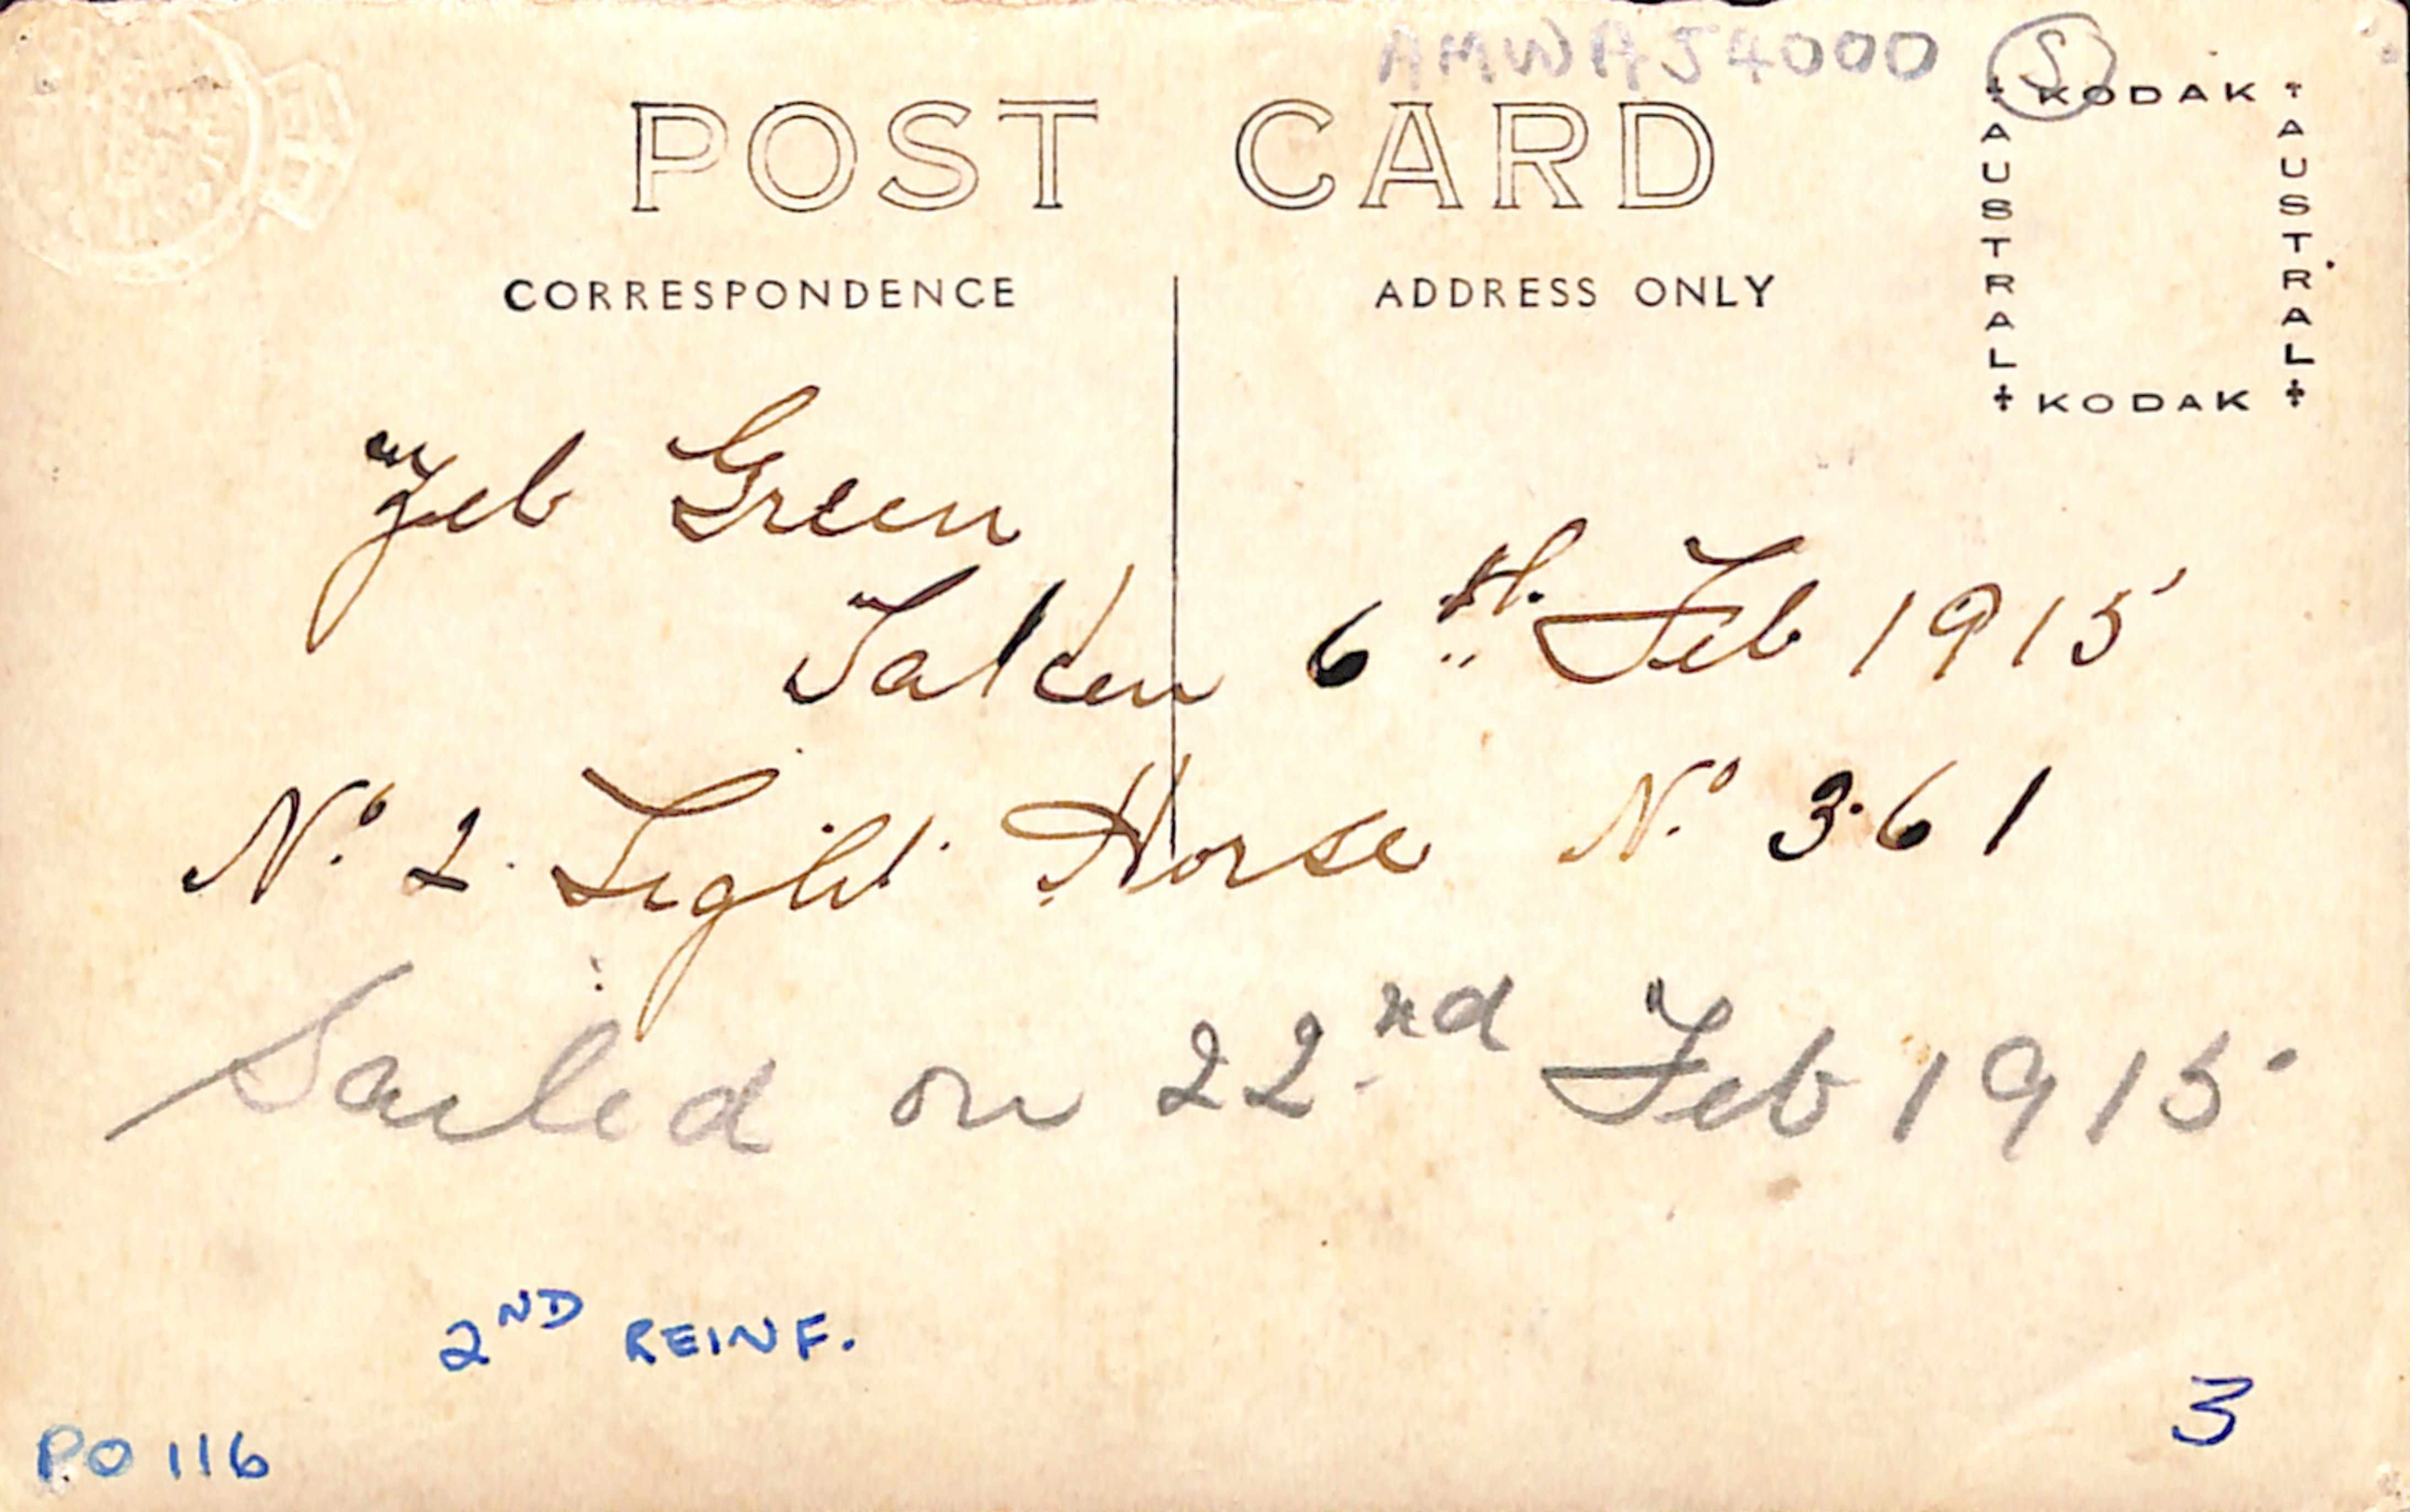 AMWA54000 S
POST CARD
CORRESPONDENCE ADDRESS ONLY
KODAK
AUSTRAL
AUSTRAL
KODAK
Zeb Green
Taken 6th Feb 1915
No. 2. Light Horse No. 361
Sailed on 22nd Feb 1915.
2ND REINF.
3
PO 116